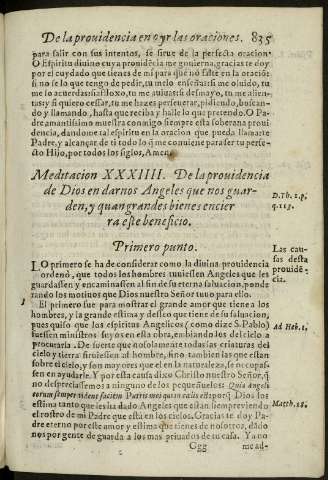 De la prouidencia en oyr las oraciones. 835
para salir con sus intentos, se sirue de la perfecta oracion.
O Espiritu diuino cuya prouidẽcia me gouierna, gracias te doy
por el cuydado que tienes de mi para que no falte en la oraciõ:
si no se lo que tengo de pedir, tu me lo enseñarás si me oluido, tu
me lo acuerdas si afloxo, tu me
tas y si quiero cessar, tu me hazes perseuerar, pidiendo, buscan-
do y llamando, hasta que reciba y halle lo que pretendo. O Pa
dre amantissimo muestra conmigo siempre esta soberana proui
dencia, dandome tal espiritu en la oracion que pueda llamarte
Padre, y alcançar de ti todo lo q̃ me conuiene para ser tu perfe-
cto Hijo, por todos los siglos, Amen.
Meditacion XXXIIII. De la prouidencia
de Dios en darnos Angeles que nos guar-
den, y quan grandes bienes encier
ra este beneficio.
D.Th. 1.p.
q.113.
Primero punto.
Las cau-
sas desta
prouidẽ-
cia.
LO primero se ha de considerar como la diuina prouidencia
ordenó, que todos los hombres tuuiessen Angeles que les
guardassen y encaminassen al fin de su eterna saluacion, ponde
rando los motiuos que Dios nuestro Señor tuuo para ello.
1 El primero fue para mostrar el grande amor que tiene a los
hombres, y la grande estima y desseo que tiene de su saluacion,
pues quiso que los espiritus Angelicos (como dize S. Pablo)
Ad Heb. 1.
fuessen ministros suyos en esta obra, embiandolos del cielo a
procurarla. De suerte que no solamente todas las criaturas del
cielo y tierra siruiessen al hombre, sino tambien las que están
sobre el cielo, y son mayores que el en la naturaleza, se ocupas-
sen en ayudarle. Y por esta causa dixo Christo nuestro Señor, q̃
no despreciassemos a ninguno de los pequeñuelos: Quia Angeli
eorum semper vident faciem Patris mei qui in cælis est porq̃ Dios los
Matth. 18.
estima tanto que les ha dado Angeles que están siempre viendo
el rostro de mi Padre que está en los cielos. Gracias te doy Pa-
dre eterno por este amor y estima que tienes de nosotros, dãdo
nos por gente de guarda a los mas priuados de tu casa. Ya no
Ggg me ad-